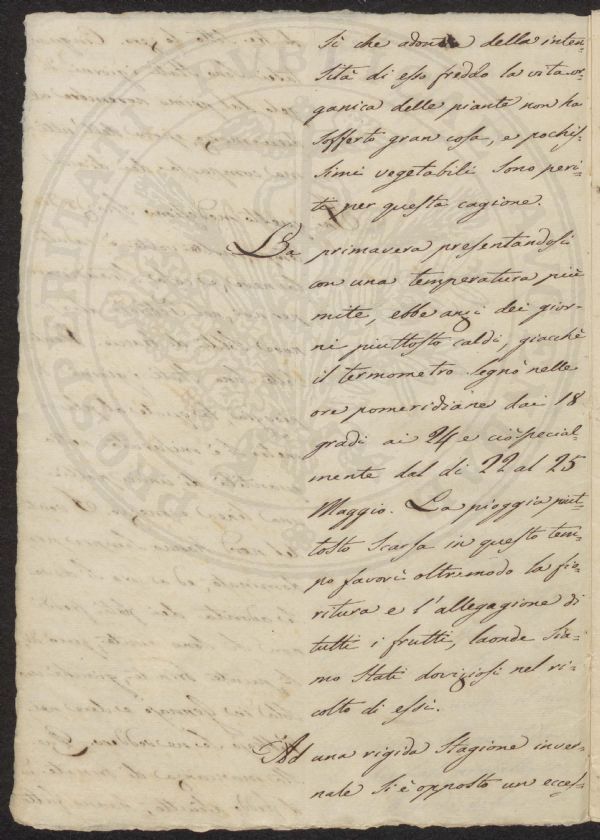 si che adonta della inten-
sità di esso freddo la vita or-
ganica delle piante non ha
sofferto gran cosa, e pochis-
simi vegetabili sono peri-
ti per questa cagione.
La primavera presentandosi
con una temperatura più
mite, ebbe anzi dei gior-
ni piuttosto caldi, giacchè
il termometro segnò nelle
ore pomeridiane dai 18
gradi ai 24 e ciò special-
mente dal di 22 al 25
Maggio. La pioggia piut-
tosto scarsa in questo tem-
po favorì oltremodo la fio-
ritura e l'allegagione di
tutti i frutti, laonde sia-
mo stati doviziosi nel ri-
colto di essi.
Ad una rigida stagione inver-
nale si è opposto un ecces-